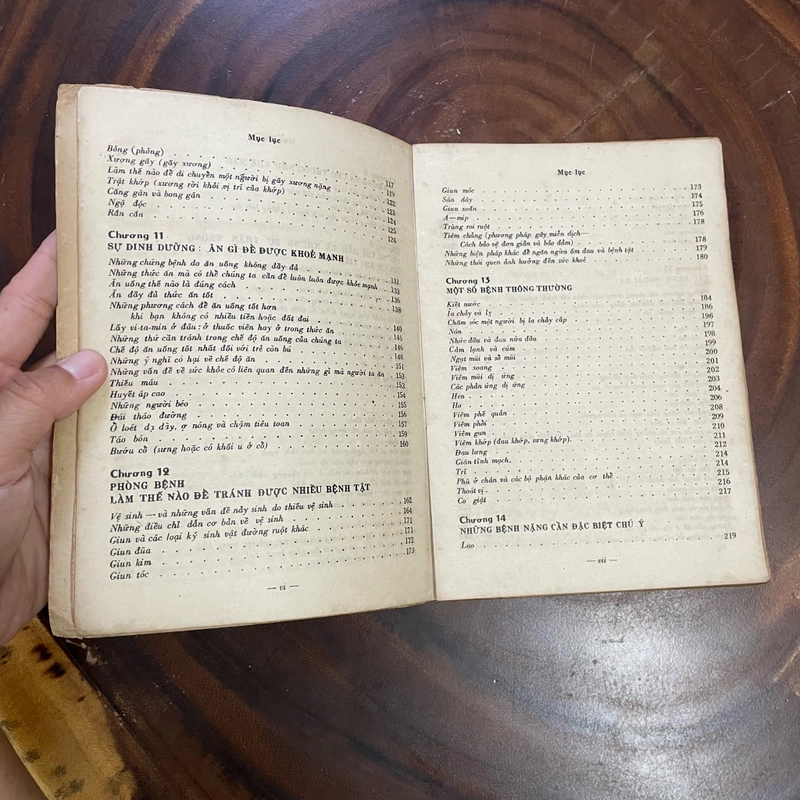 Mục lục
Bỏng (phỏng)
Xương gãy (gãy xương)
Làm thế nào để di chuyển một người bị gãy xương nặng 117
Trật khớp (xương rời khỏi vị trí của khớp) 119
Căng gân và bong gân 122
Ngộ độc 123
Rắn cắn 124
125
126
Chương 11
SỰ DINH DƯỠNG : ĂN GÌ ĐỂ ĐƯỢC KHOẺ MẠNH
Những chứng bệnh do ăn uống không đầy đủ
Những thức ăn mà cơ thể chúng ta cần để luôn luôn được khỏe mạnh 131
Ăn uống thế nào là đúng cách 133
Ăn đầy đủ thức ăn tốt 136
Những phương cách để ăn uống tốt hơn 138
khi bạn không có nhiều tiền hoặc đất đai
Lấy vi-ta-min ở đâu : ở thuốc viên hay ở trong thức ăn 140
Những thứ cần tránh trong chế độ ăn uống của chúng ta 145
Chế độ ăn uống tốt nhất đối với trẻ còn bú 146
Những ý nghĩ có hại về chế độ ăn 148
Những vấn đề về sức khỏe có liên quan đến những gì mà người ta ăn 151
Thiếu máu 153
Huyết áp cao 154
Những người béo 155
Đái tháo đường 156
Ổ loét dạ dày, ợ nóng và chậm tiêu toan 157
Táo bón 159
Bướu cổ (sưng hoặc có khối u ở cổ) 160
Chương 12
PHÒNG BỆNH
LÀM THẾ NÀO ĐỂ TRÁNH ĐƯỢC NHIỀU BỆNH TẬT
Vệ sinh — và những vấn đề nảy sinh do thiếu vệ sinh 162
Những điều chỉ dẫn cơ bản về vệ sinh 164
Giun và các loại ký sinh vật đường ruột khác 171
Giun đũa 171
Giun kim 172
Giun tóc 173
— vi —
Mục lục
Giun móc 173
Sán dây 174
Giun xoắn 175
A—míp 176
Trùng roi ruột 178
Tiêm chủng (phương pháp gây miễn dịch—
Cách bảo vệ đơn giản và bảo đảm) 178
Những biện pháp khác để ngăn ngừa ốm đau và bệnh tật 179
Những thói quen ảnh hưởng đến sức khoẻ 180
Chương 13
MỘT SỐ BỆNH THÔNG THƯỜNG
Kiệt nước 184
Ỉa chảy và lỵ 186
Chăm sóc một người bị ỉa chảy cấp 196
Nôn 197
Nhức đầu và đau nửa đầu 198
Cảm lạnh và cúm 199
Ngạt mũi và sổ mũi 200
Viêm xoang 201
Viêm mũi dị ứng 202
Các phản ứng dị ứng 203
Hen 204
Ho 206
Viêm phế quản 208
Viêm phổi 209
Viêm gan 210
Viêm khớp (đau khớp, sưng khớp) 211
Đau lưng 212
Giãn tĩnh mạch 214
Trĩ 214
Phù ở chân và các bộ phận khác của cơ thể 215
Thoát vị 216
Co giật 217
Chương 14
NHỮNG BỆNH NẶNG CẦN ĐẶC BIỆT CHÚ Ý
Lao 219
— vii —